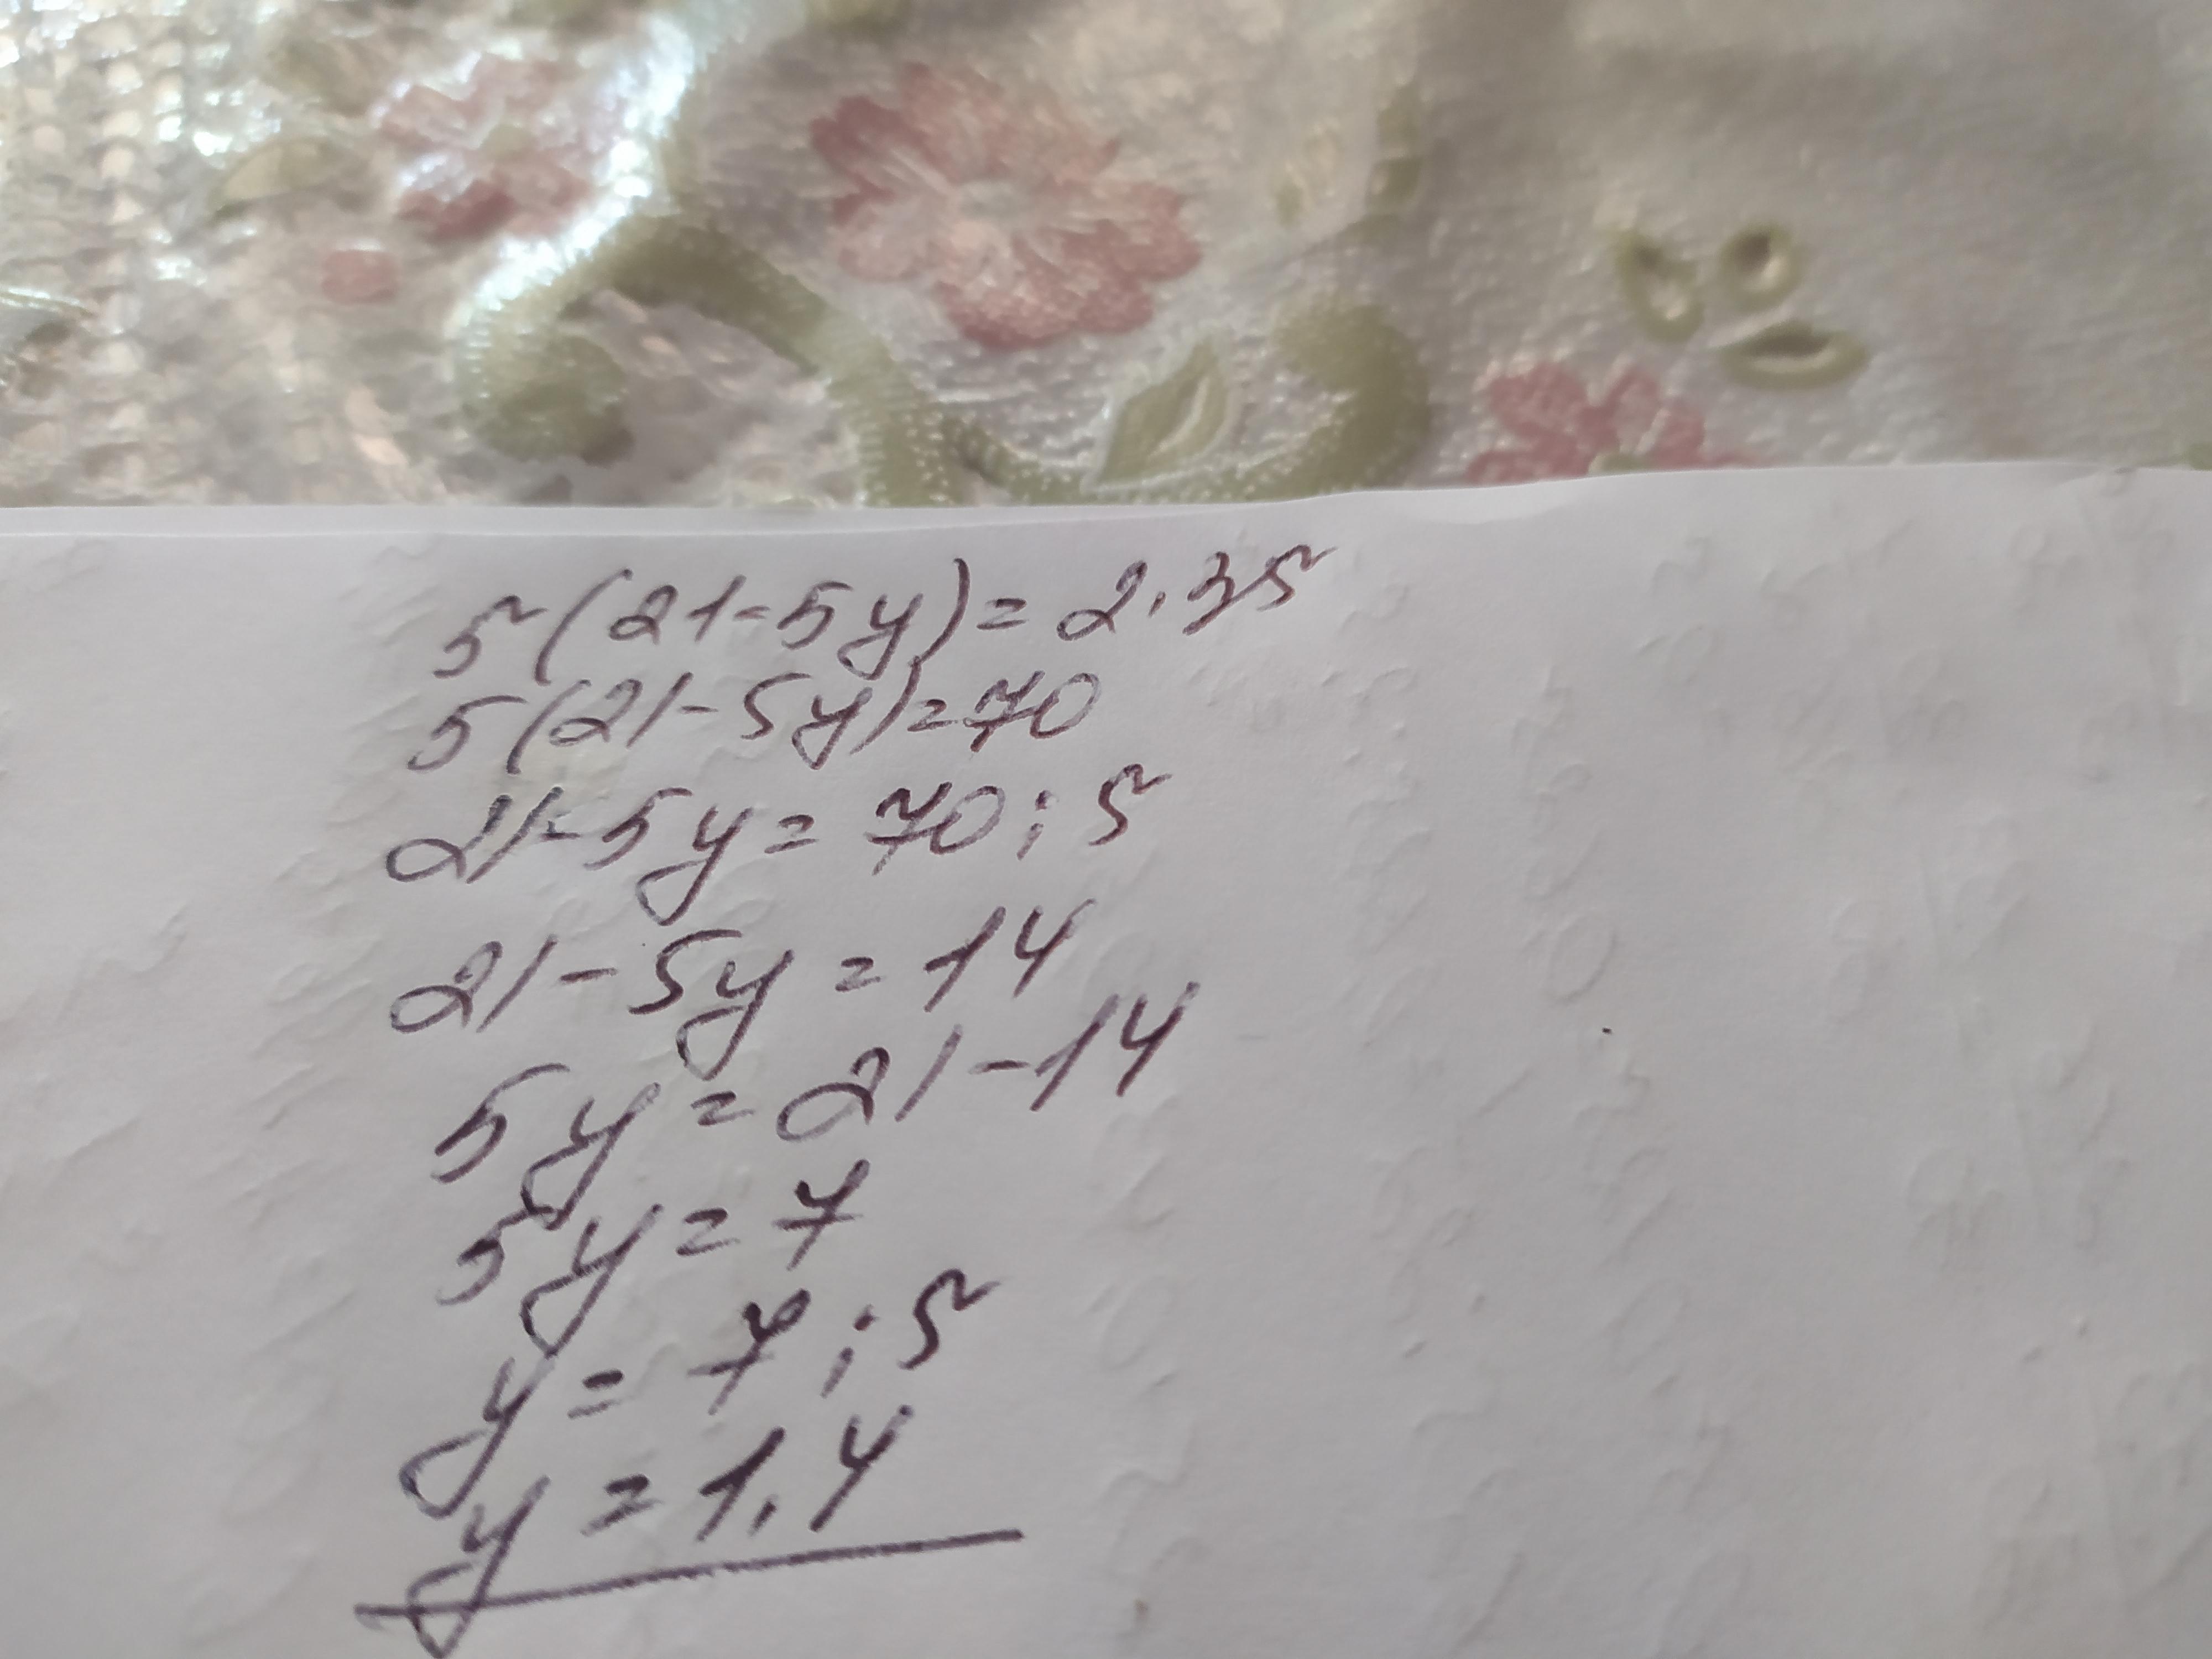 5(21-5y)=2.35
5(21-5y)=70
21-5y=70:5
21-5y=14
5y=21-14
5y=7
y=7:5
y=1.4